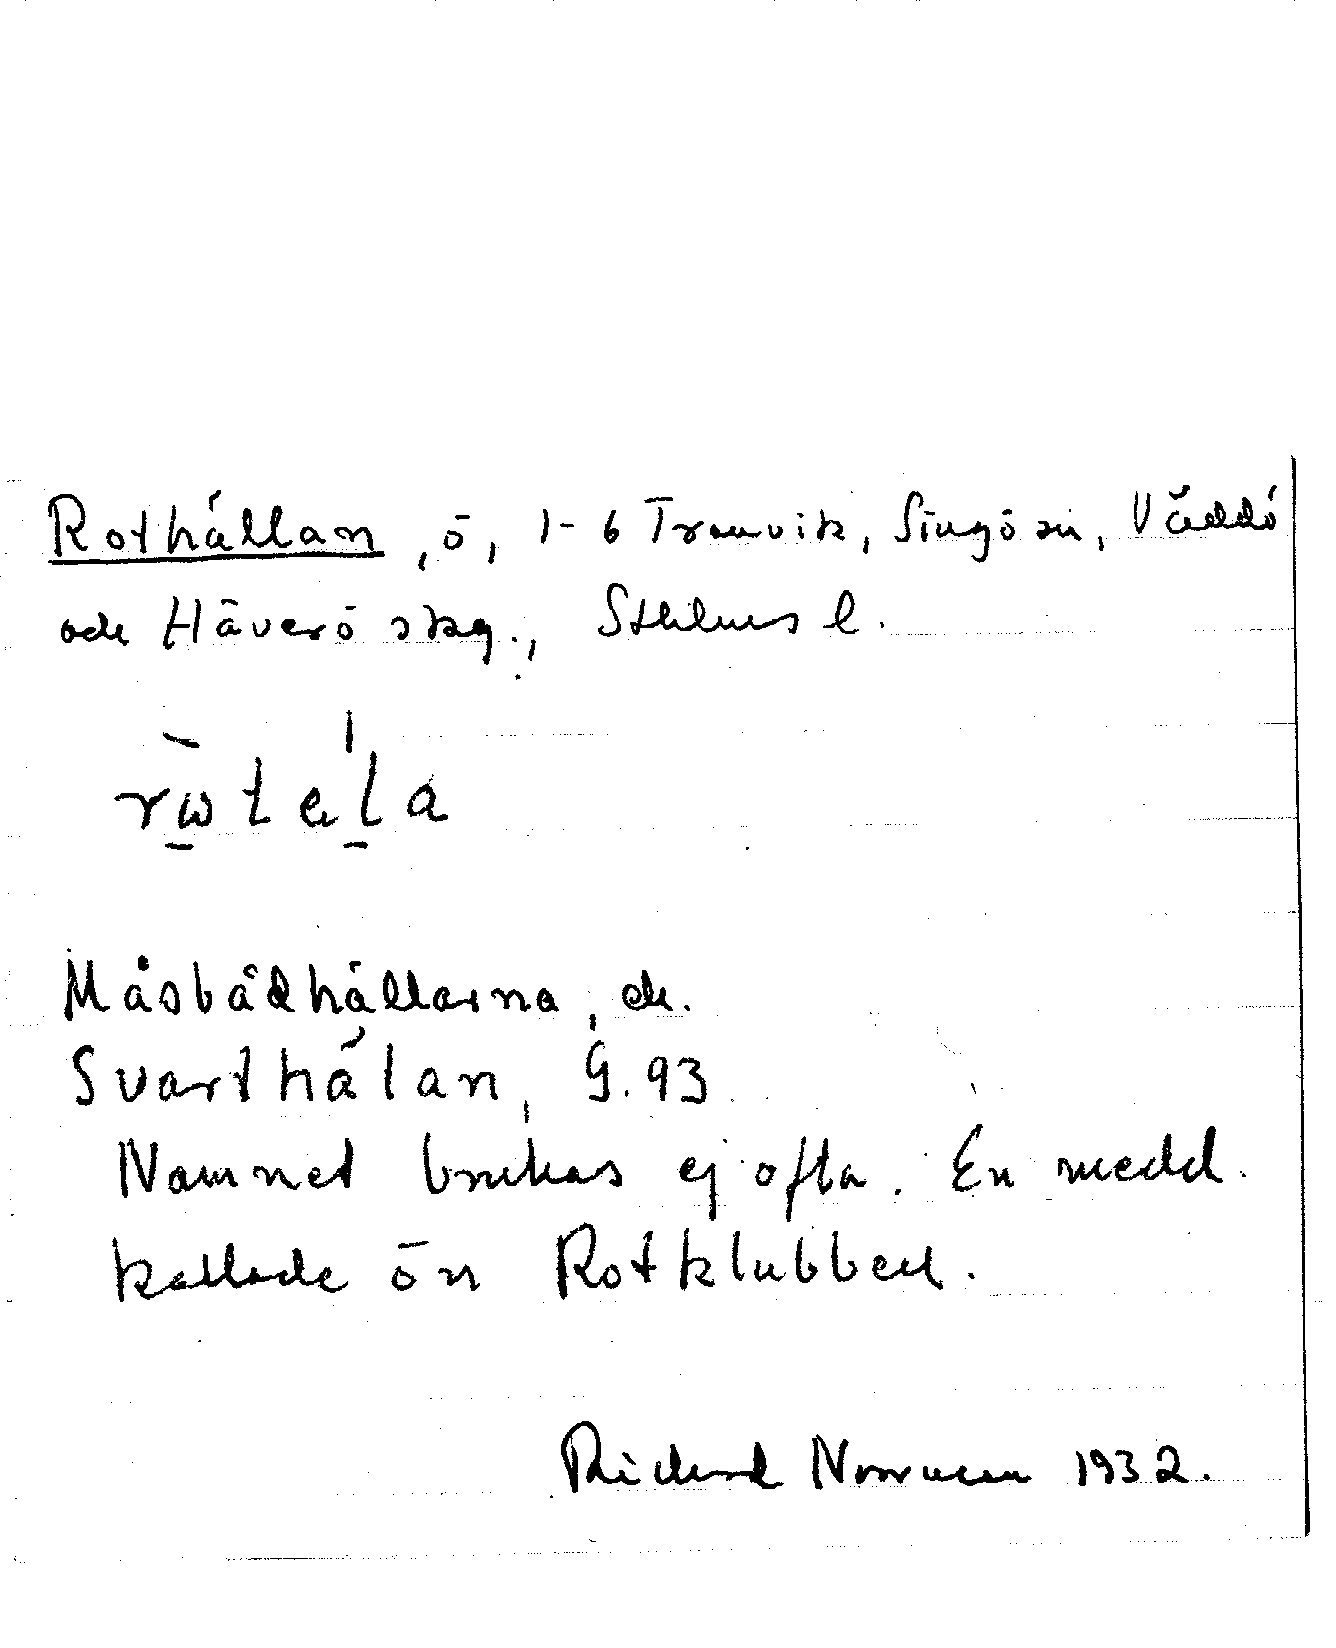 Rothällan, ö, 1-6 Tranvik, Singö sn, Väddö
och Häverö skg., Sthlms l.
rωtela
Måsbådhällarna, ek.
Svarthälan, G. 93
Namnet brukas ej ofta. En medd.
kallade ön Rotklubben.
Rickard Norrman 1932.